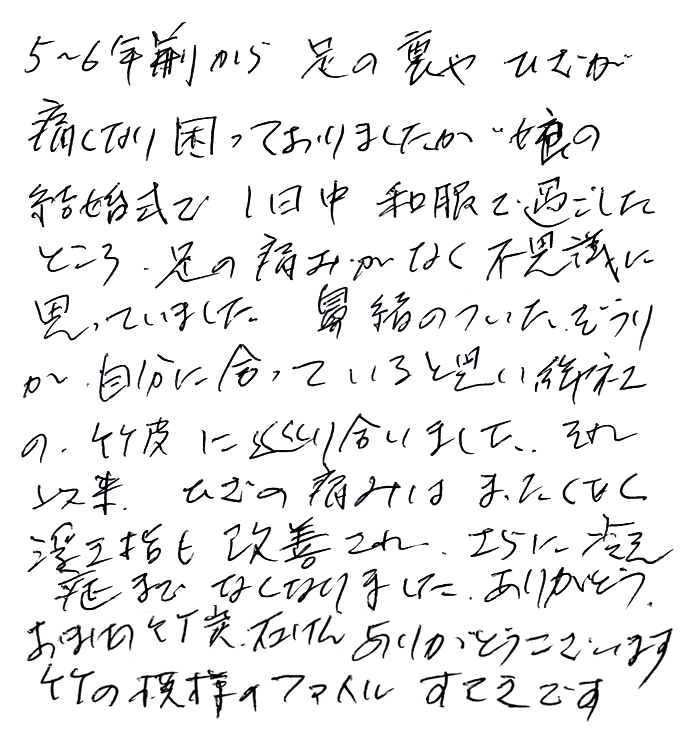 5〜6年前から 足の裏や ひざが
痛くなり困っておりましたが 娘の
結婚式で 1日中 和服で過ごした
ところ、足の痛みがなく不思議に
思っていました 鼻緒のついたぞうり
が、自分に合っていると思い
の、竹皮にめぐり合いました、それ
以来、ひざの痛みはまったくなく
浮き指も改善され、さらに冷え
症までなくなりました、ありがとう、
おまけの竹炭石けんありがとうございます
竹の模様のファイルすてきです